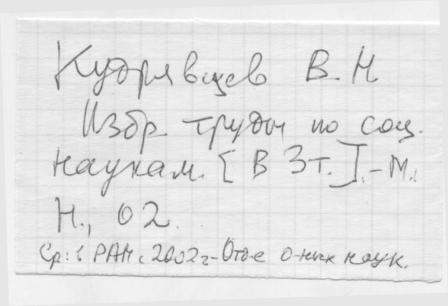 Кудрявцев В. Н
Избр. труды по соц.
наукам. [В 3т.].-М.:
Н., 02.
Ср: в РАН: 2002г-Отд-е о-ных наук.